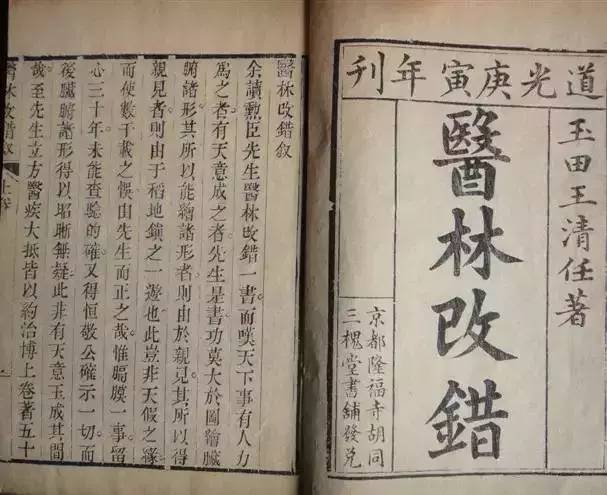 道光庚寅年刊
玉田王清任著
醫林改錯
京都隆福寺胡同
三槐堂書鋪發兌
醫林改錯敘
余讀勲臣先生醫林改錯一書。而嘆天下事有人力
為之者。有天意成之者。先生是書功莫大於圖繪臟
腑諸形。其所以能繪諸形者。則由於親見。其所以得
親見者。則由于稻地鎮之一遊也。此豈非天假之緣
而使數千載之悞由先生而正之哉。惟膈膜一事。留
心三十年。未能查驗的確。又得恒敬公確示一切。而
後臟腑諸形得以昭晰無疑。此非有天意玉成其間
哉。至先生立方醫疾大抵皆以約治博上卷著五十
醫林改錯敘
上卷
一